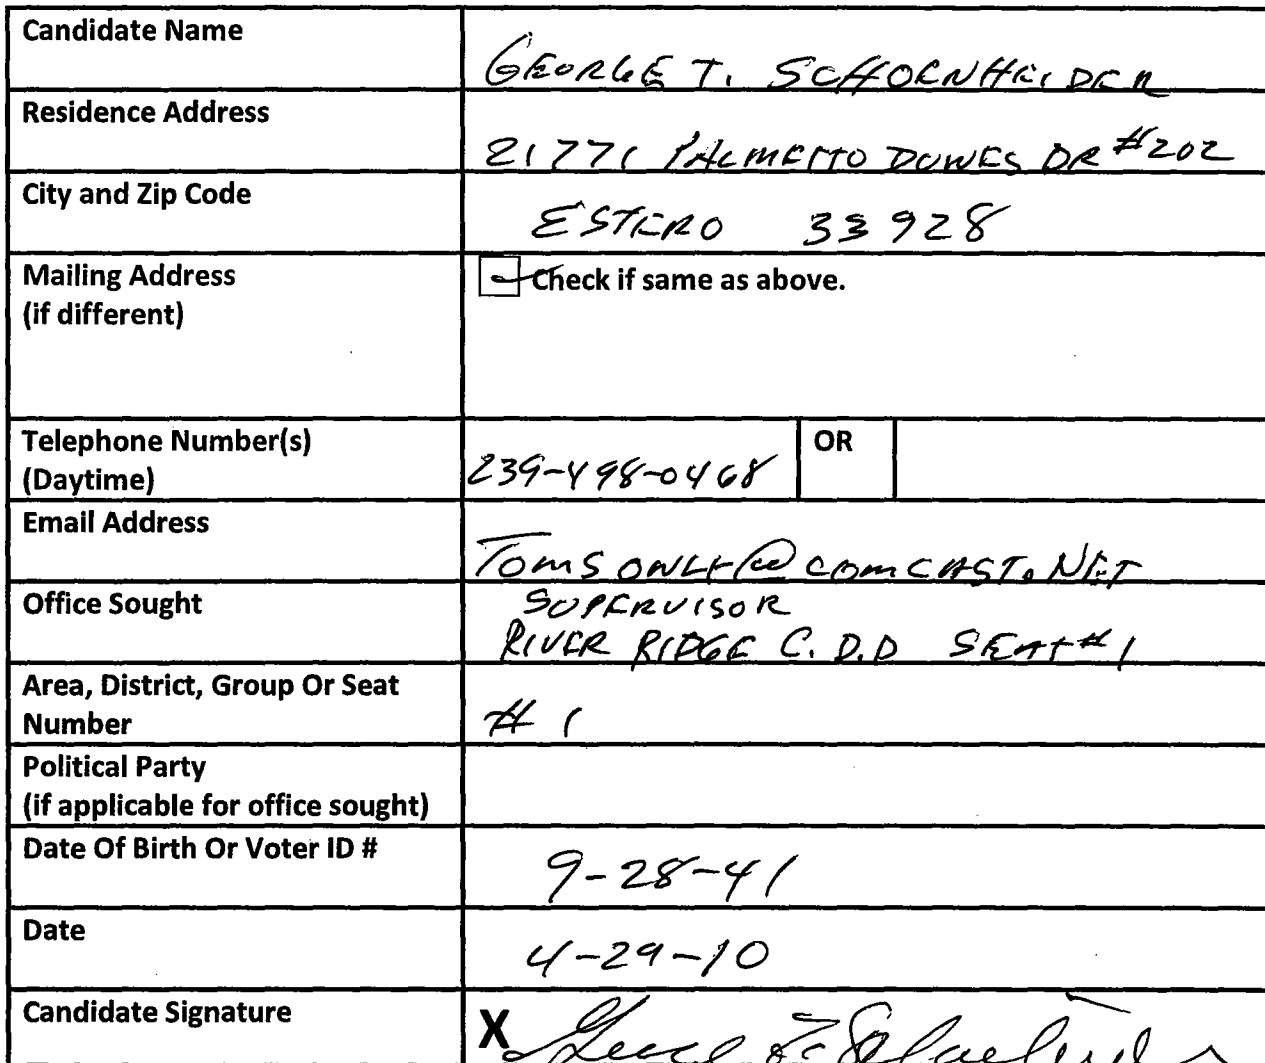 Candidate Name
GEORGE T. SCHOENHEIDER
Residence Address
21771 PALMETTO DUNES DR #202
City and Zip Code
ESTERO 33928
Mailing Address
(if different)
Check if same as above.
Telephone Number(s)
(Daytime)
239-498-0468
OR
Email Address
TOMSONLY@COMCAST.NET
Office Sought
SUPERVISOR
RIVER RIDGE C.D.D SEAT #1
Area, District, Group Or Seat
Number
# 1
Political Party
(if applicable for office sought)
Date Of Birth Or Voter ID #
9-28-41
Date
4-29-10
Candidate Signature
X